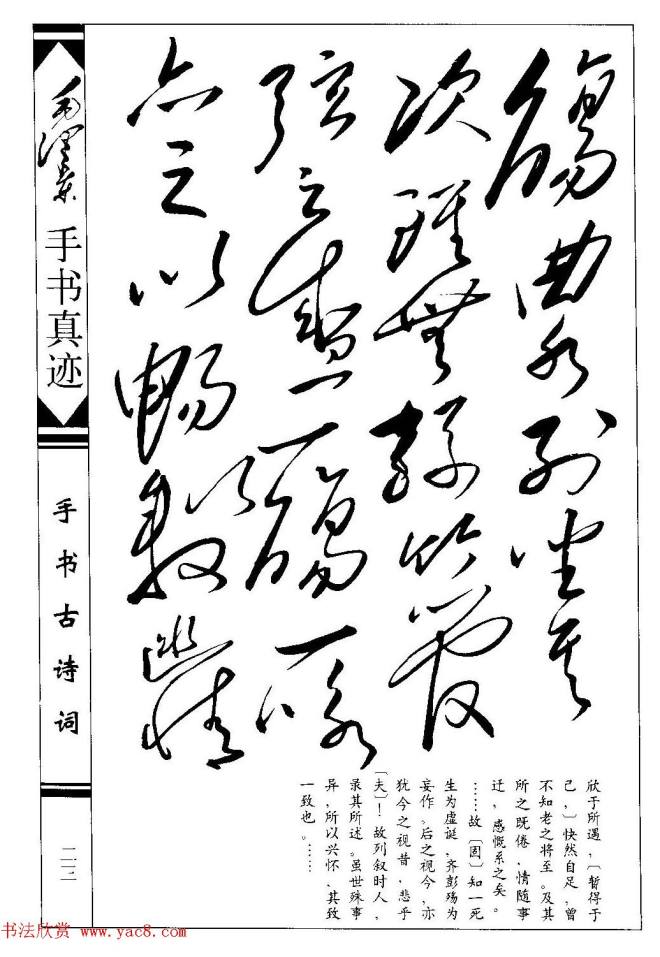 觴曲水列坐其
次雖無絲竹管
弦之盛一觴一詠
亦足以暢敘幽情
欣于所遇，〔暂得于
己，〕快然自足，曾
不知老之将至。及其
所之既倦，情随事
迁，感慨系之矣。
……故〔固〕知一死
生为虚诞，齐彭殇为
妄作。后之视今，亦
犹今之视昔，悲乎
〔夫〕！故列叙时人，
录其所述。虽世殊事
异，所以兴怀，其致
一致也。……
毛泽东
手书真迹
手书古诗词
书法欣赏 www.yac8.com